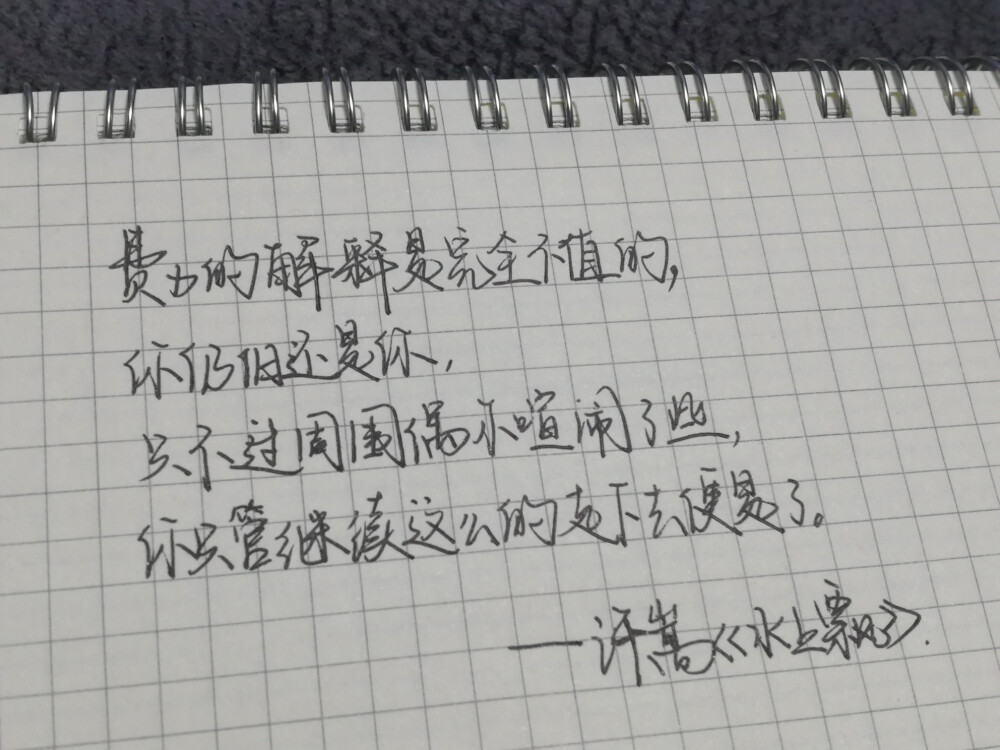 费力的解释是完全不值的，
你仍旧还是你，
只不过周围偶尔喧闹了些，
你只管继续这么的走下去便是了。
——许嵩《水上飘的》.